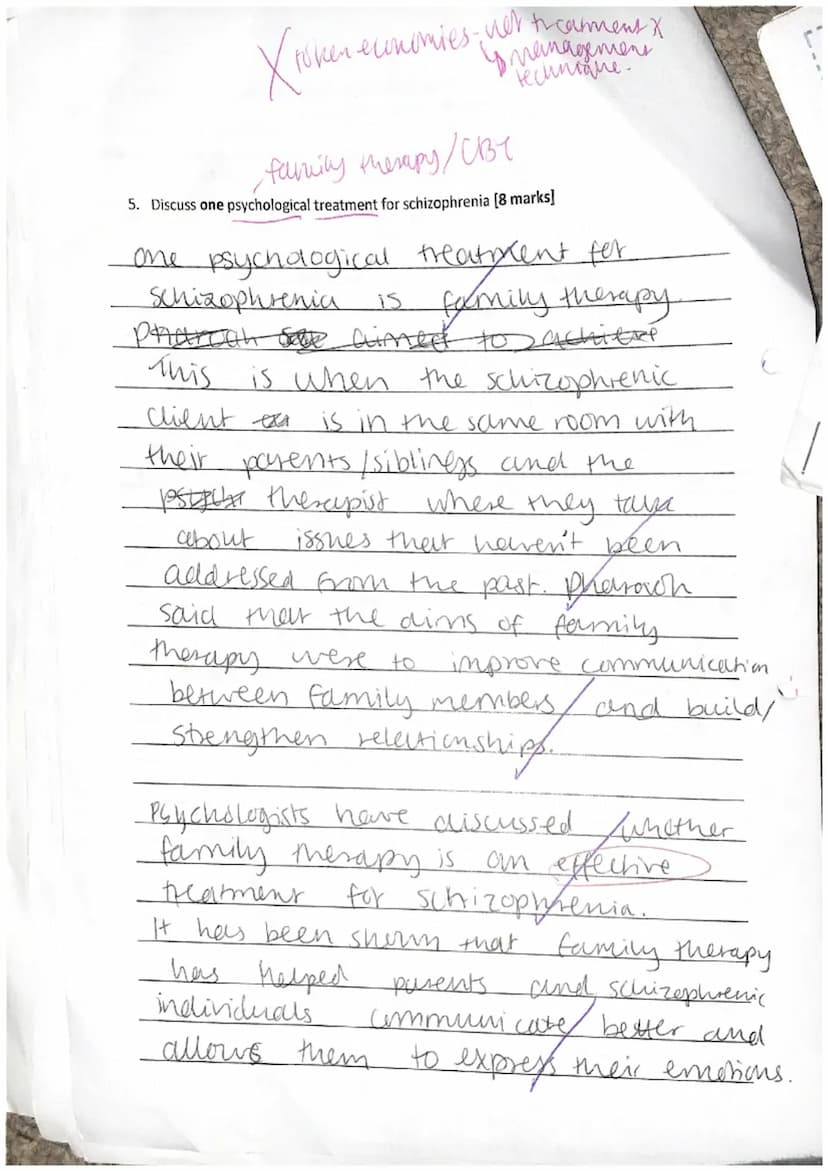 X token economies - not treatment X
↳ management
technique.
family therapy/CBT
5. Discuss one psychological treatment for schizophrenia [8 marks]
One psychological treatment for
schizophrenia is family therapy.
aimed to
This is when the schizophrenic
client is in the same room with
their parents/siblings and the
therapist where they talk
about issues that haven't been
addressed from the past. Pharaoh
said that the aims of family
therapy were to improve communication
between family members and build/
strengthen relationships.
Psychologists have discussed whether
family therapy is an effective
treatment for schizophrenia.
It has been shown that family therapy
has helped parents and schizophrenic
individuals communicate better and
allows them to express their emotions.